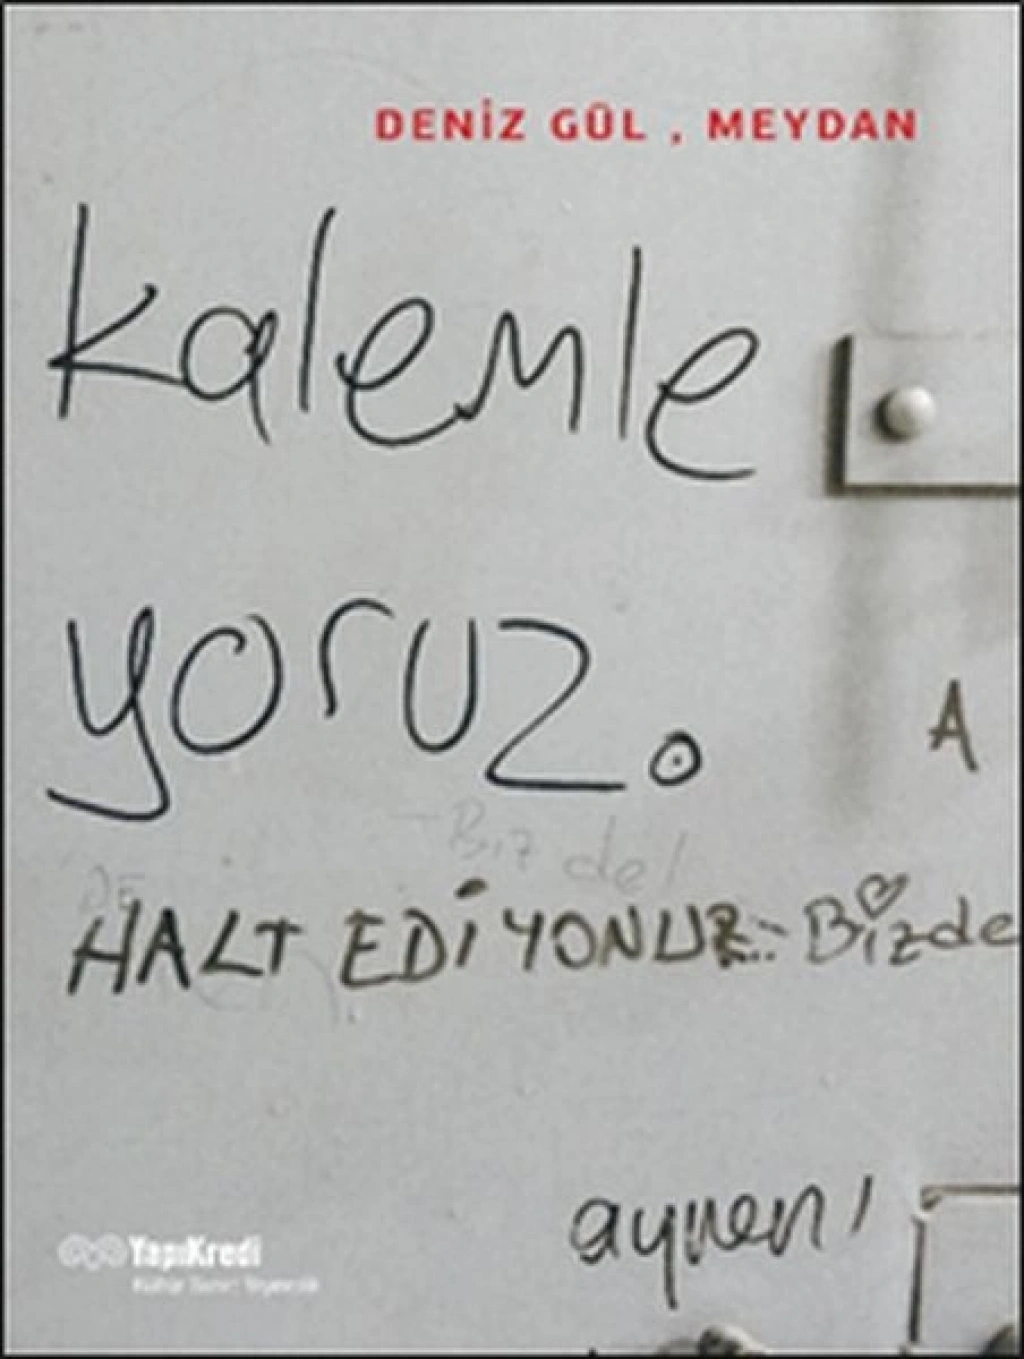 DENİZ GÜL , MEYDAN
kalemle
yoruz.
A
- Biz de!
HALT EDİYONUZ... Bizde
aynen!
YapıKredi
Kültür Sanat Yayıncılık